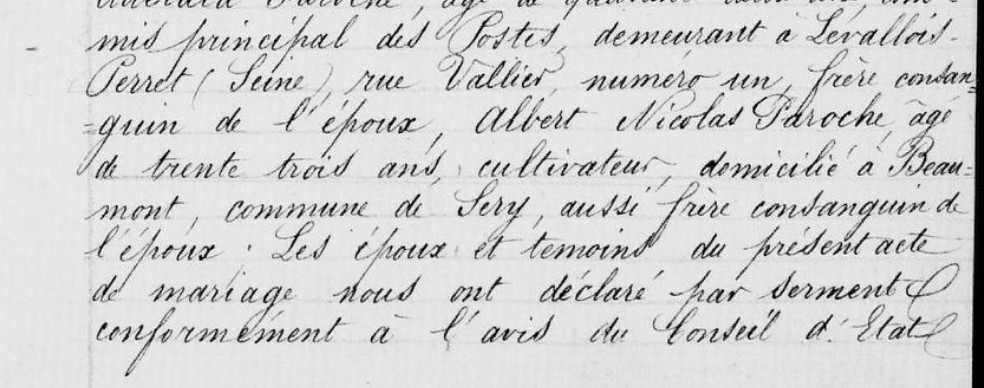 Paroche, âgé de quarante
mis principal des Postes, demeurant à Levallois-
Perret (Seine), rue Vallier, numéro un, frère consan=
=guin de l'époux, Albert Nicolas Paroche, âgé
de trente trois ans, cultivateur, domicilié à Beau=
mont, commune de Sery, aussi frère consanguin de
l'époux. Les époux et témoins du présent acte
de mariage nous ont déclaré par serment
conformément à l'avis du Conseil d'Etat